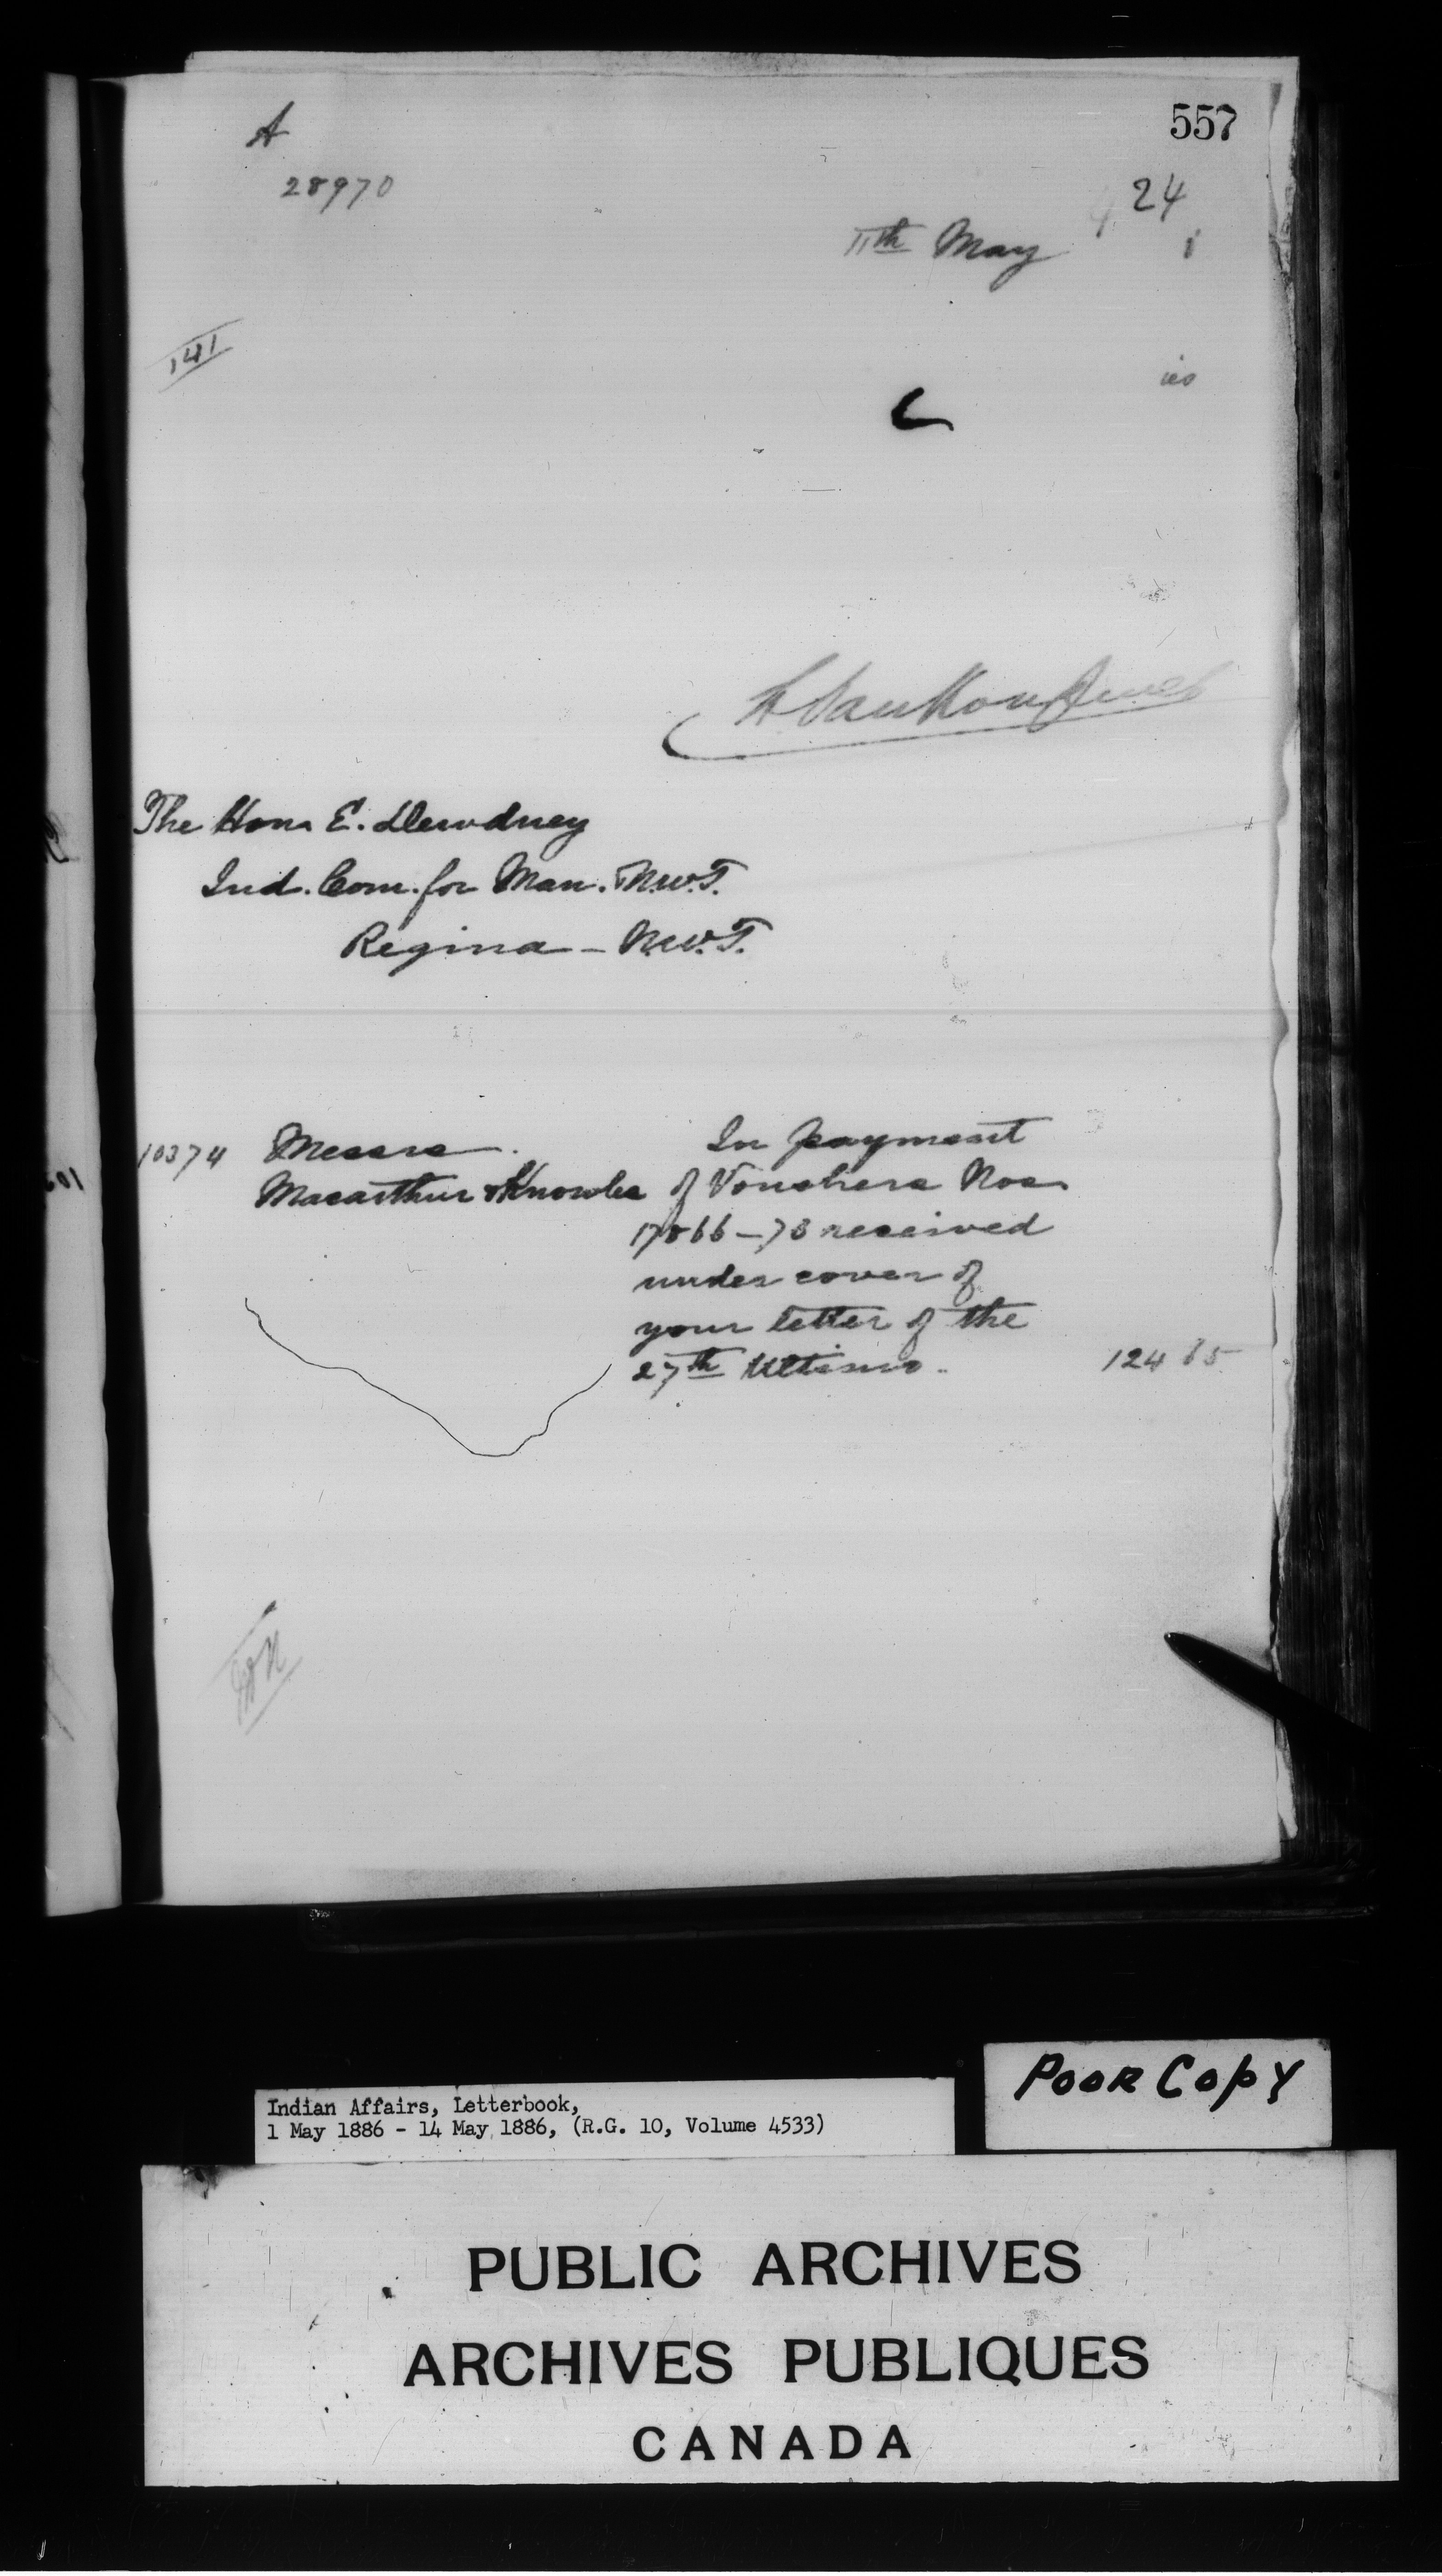 557
A
28970
24
11th May
141
L VanKoughnet
The Hon. E. Dewdney
Ind. Com. for Man. N.W.T.
Regina - N.W.T.
10374 Messrs. In payment
Macarthur & Knowles of Vouchers Nos
17866-73 received
under cover of
your letter of the
27th Ultimo. 124 85
Poor Copy
Indian Affairs, Letterbook,
1 May 1886 - 14 May 1886, (R.G. 10, Volume 4533)
PUBLIC ARCHIVES
ARCHIVES PUBLIQUES
CANADA